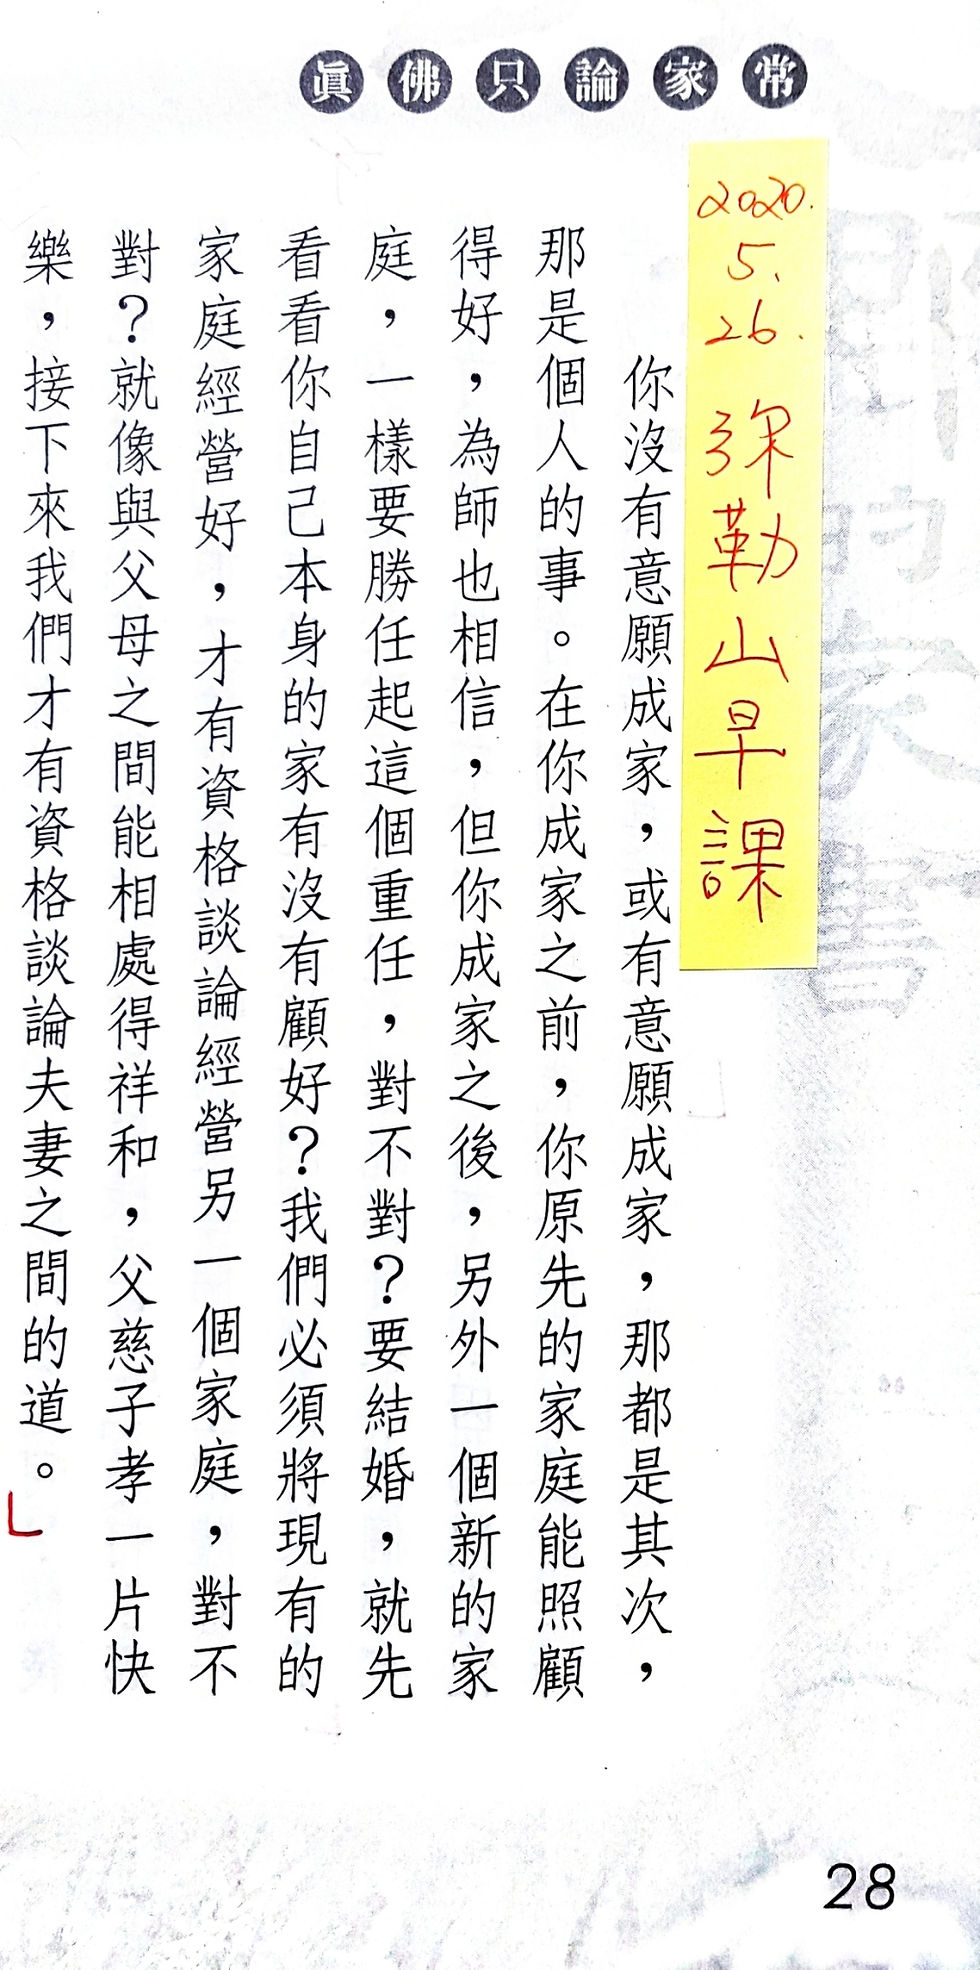 真佛只論家常
2020.
5.
26.
彌勒山早課
你沒有意願成家，或有意願成家，那都是其次，
那是個人的事。在你成家之前，你原先的家庭能照顧
得好，為師也相信，但你成家之後，另外一個新的家
庭，一樣要勝任起這個重任，對不對？要結婚，就先
看看你自己本身的家有沒有顧好？我們必須將現有的
家庭經營好，才有資格談論經營另一個家庭，對不
對？就像與父母之間能相處得祥和，父慈子孝一片快
樂，接下來我們才有資格談論夫妻之間的道。
28